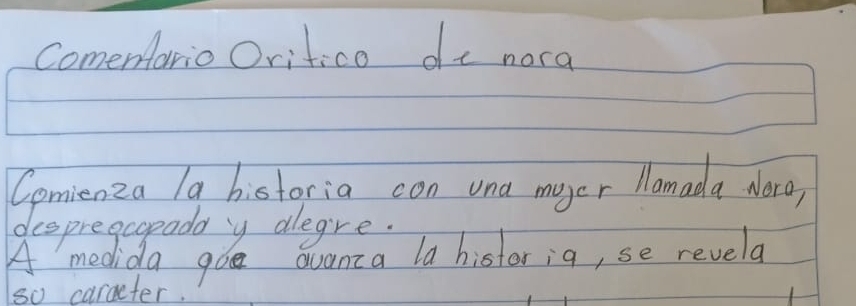 Comentario Oritico de nora
Comienza la historia con una mujer llamada Nora,
despreocupada y alegre.
A medida que avanza la historia, se revela
su caracter.